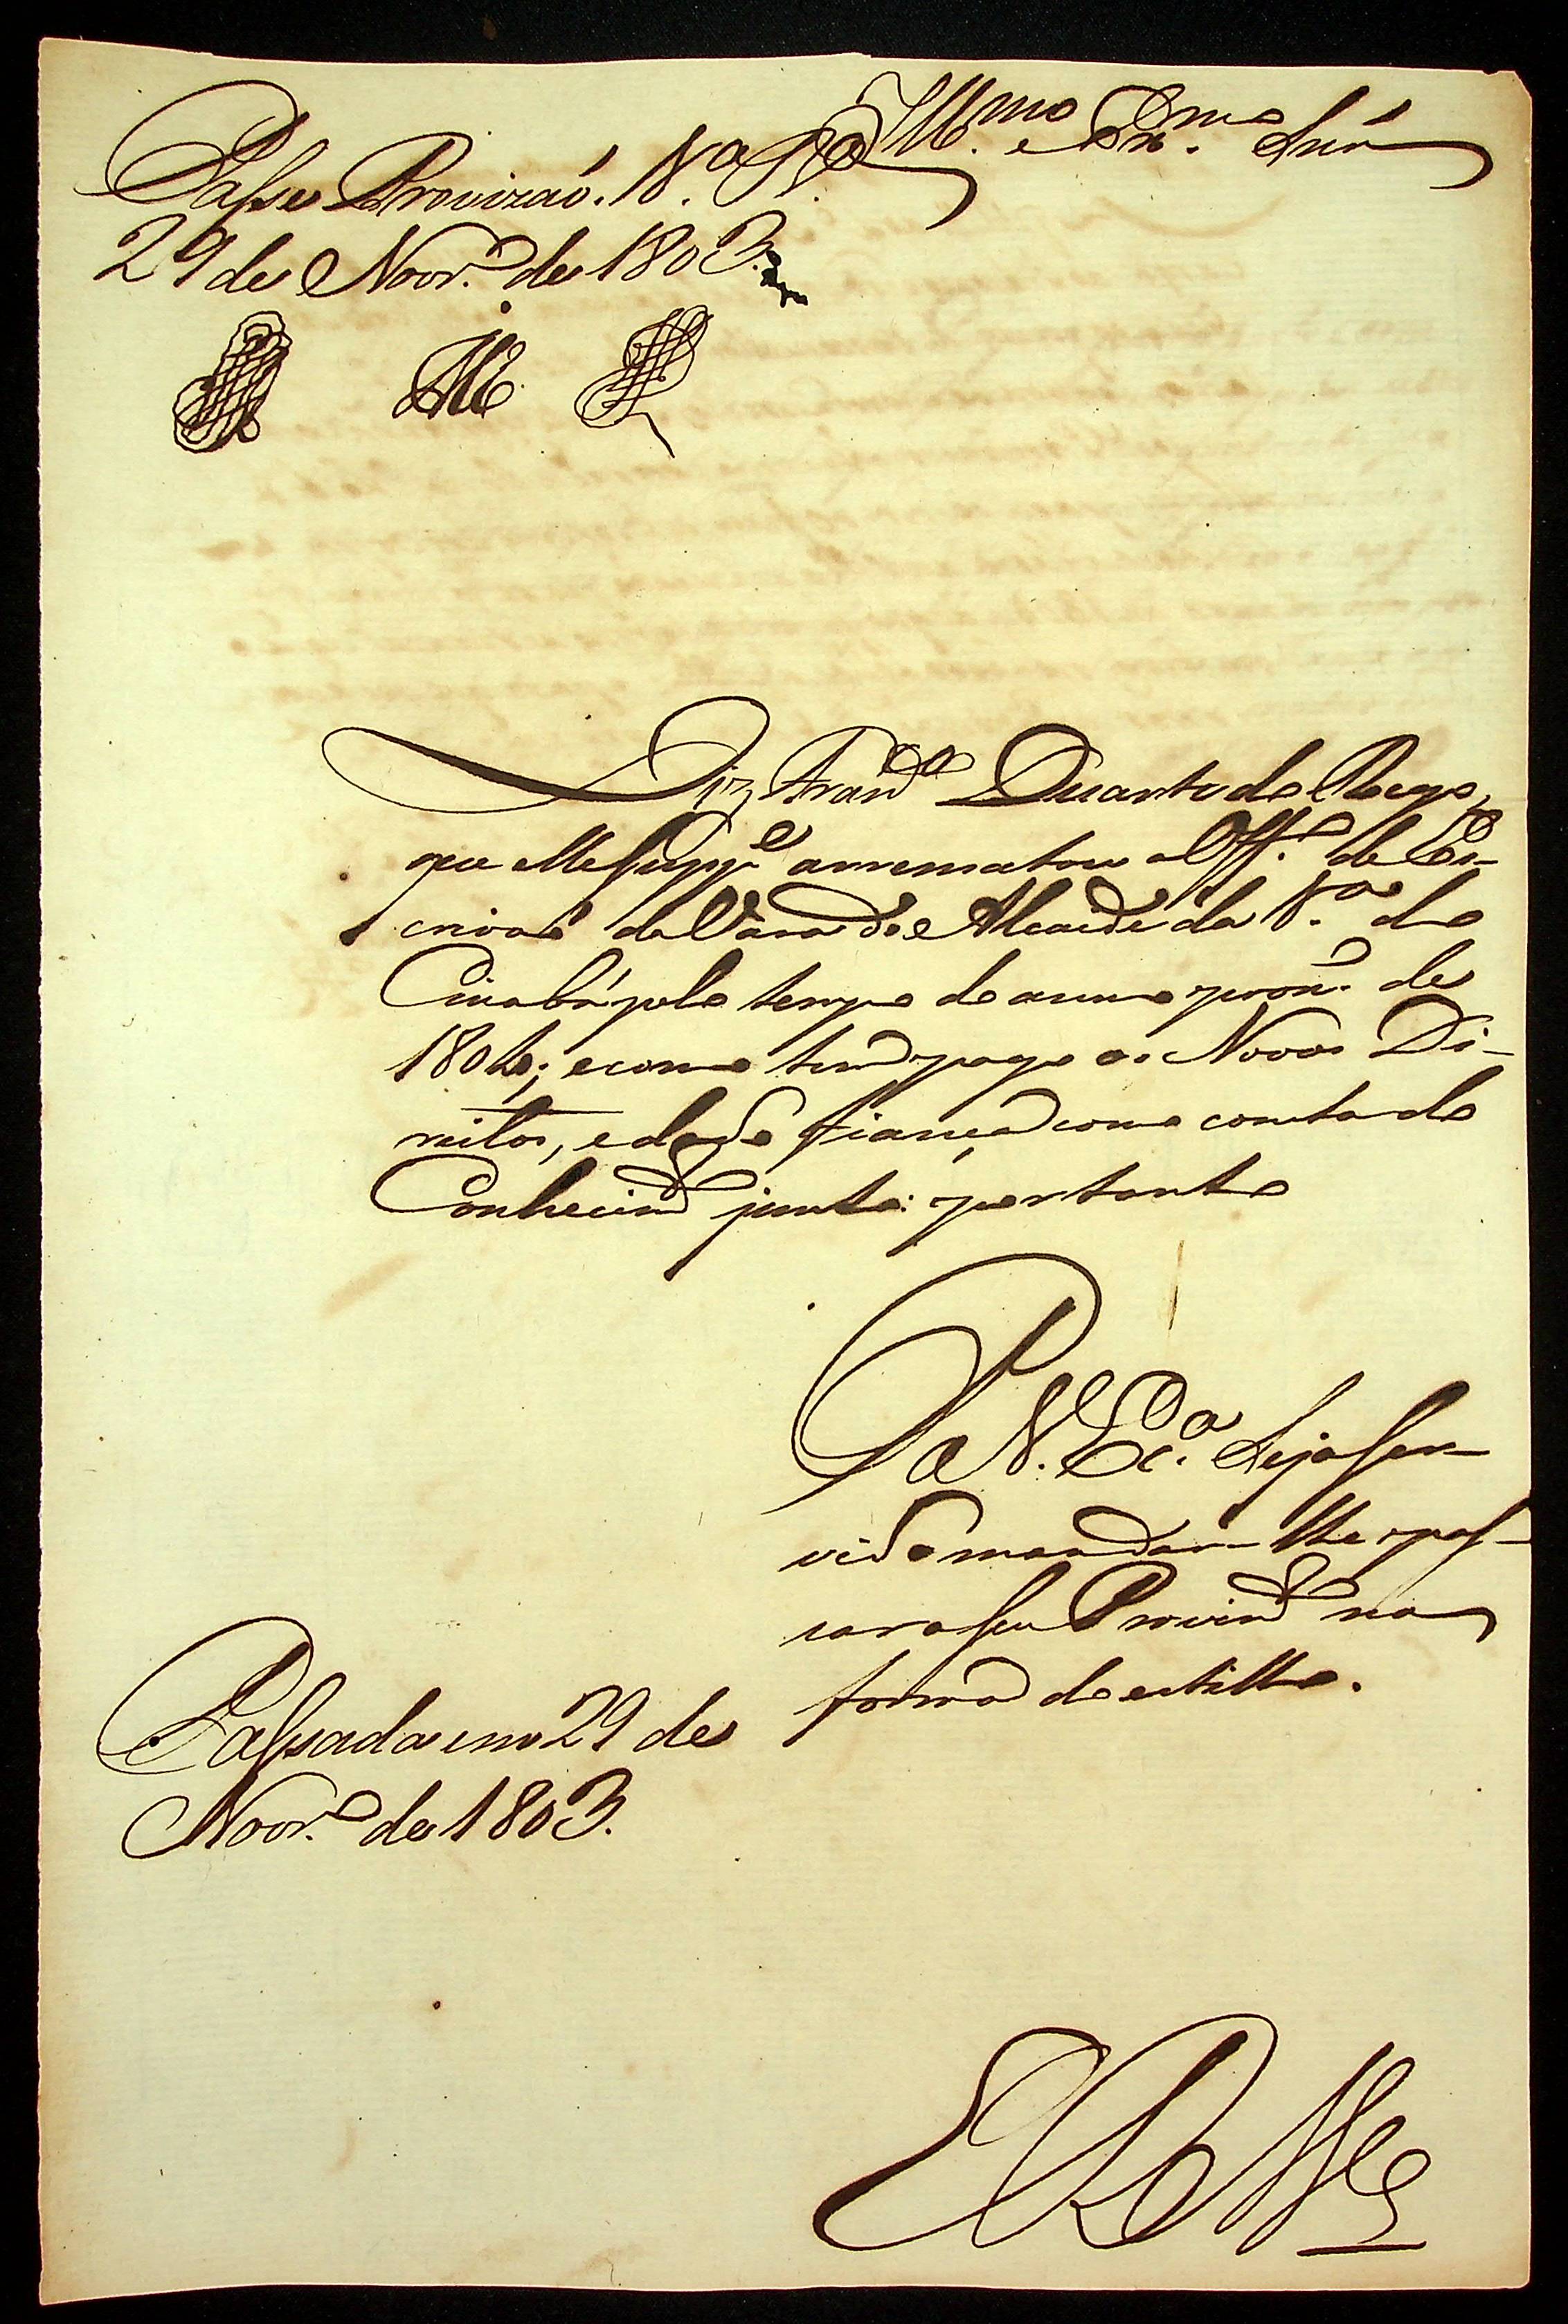 Illmo e Exmo Snr
Passe Provizaó. Va Ba
29 de Novro de 1803.
Diz Franco Duarte do Rego,
que elle Suppe arrematou o Offo de Es-
crivaõ da Vara do Alcaide da Va do
Cuiabá pelo tempo do anno proxo de
1804; e como tem pago os Novos Di-
reitos, e dado fiança como consta do
Conhecimto junto: portanto
P a V. Exca Seja Ser-
vido mandar-lhe pas-
sar o seu Provimto na
forma do estillo.
Passada em 29 de
Novro de 1803.
E R Mce